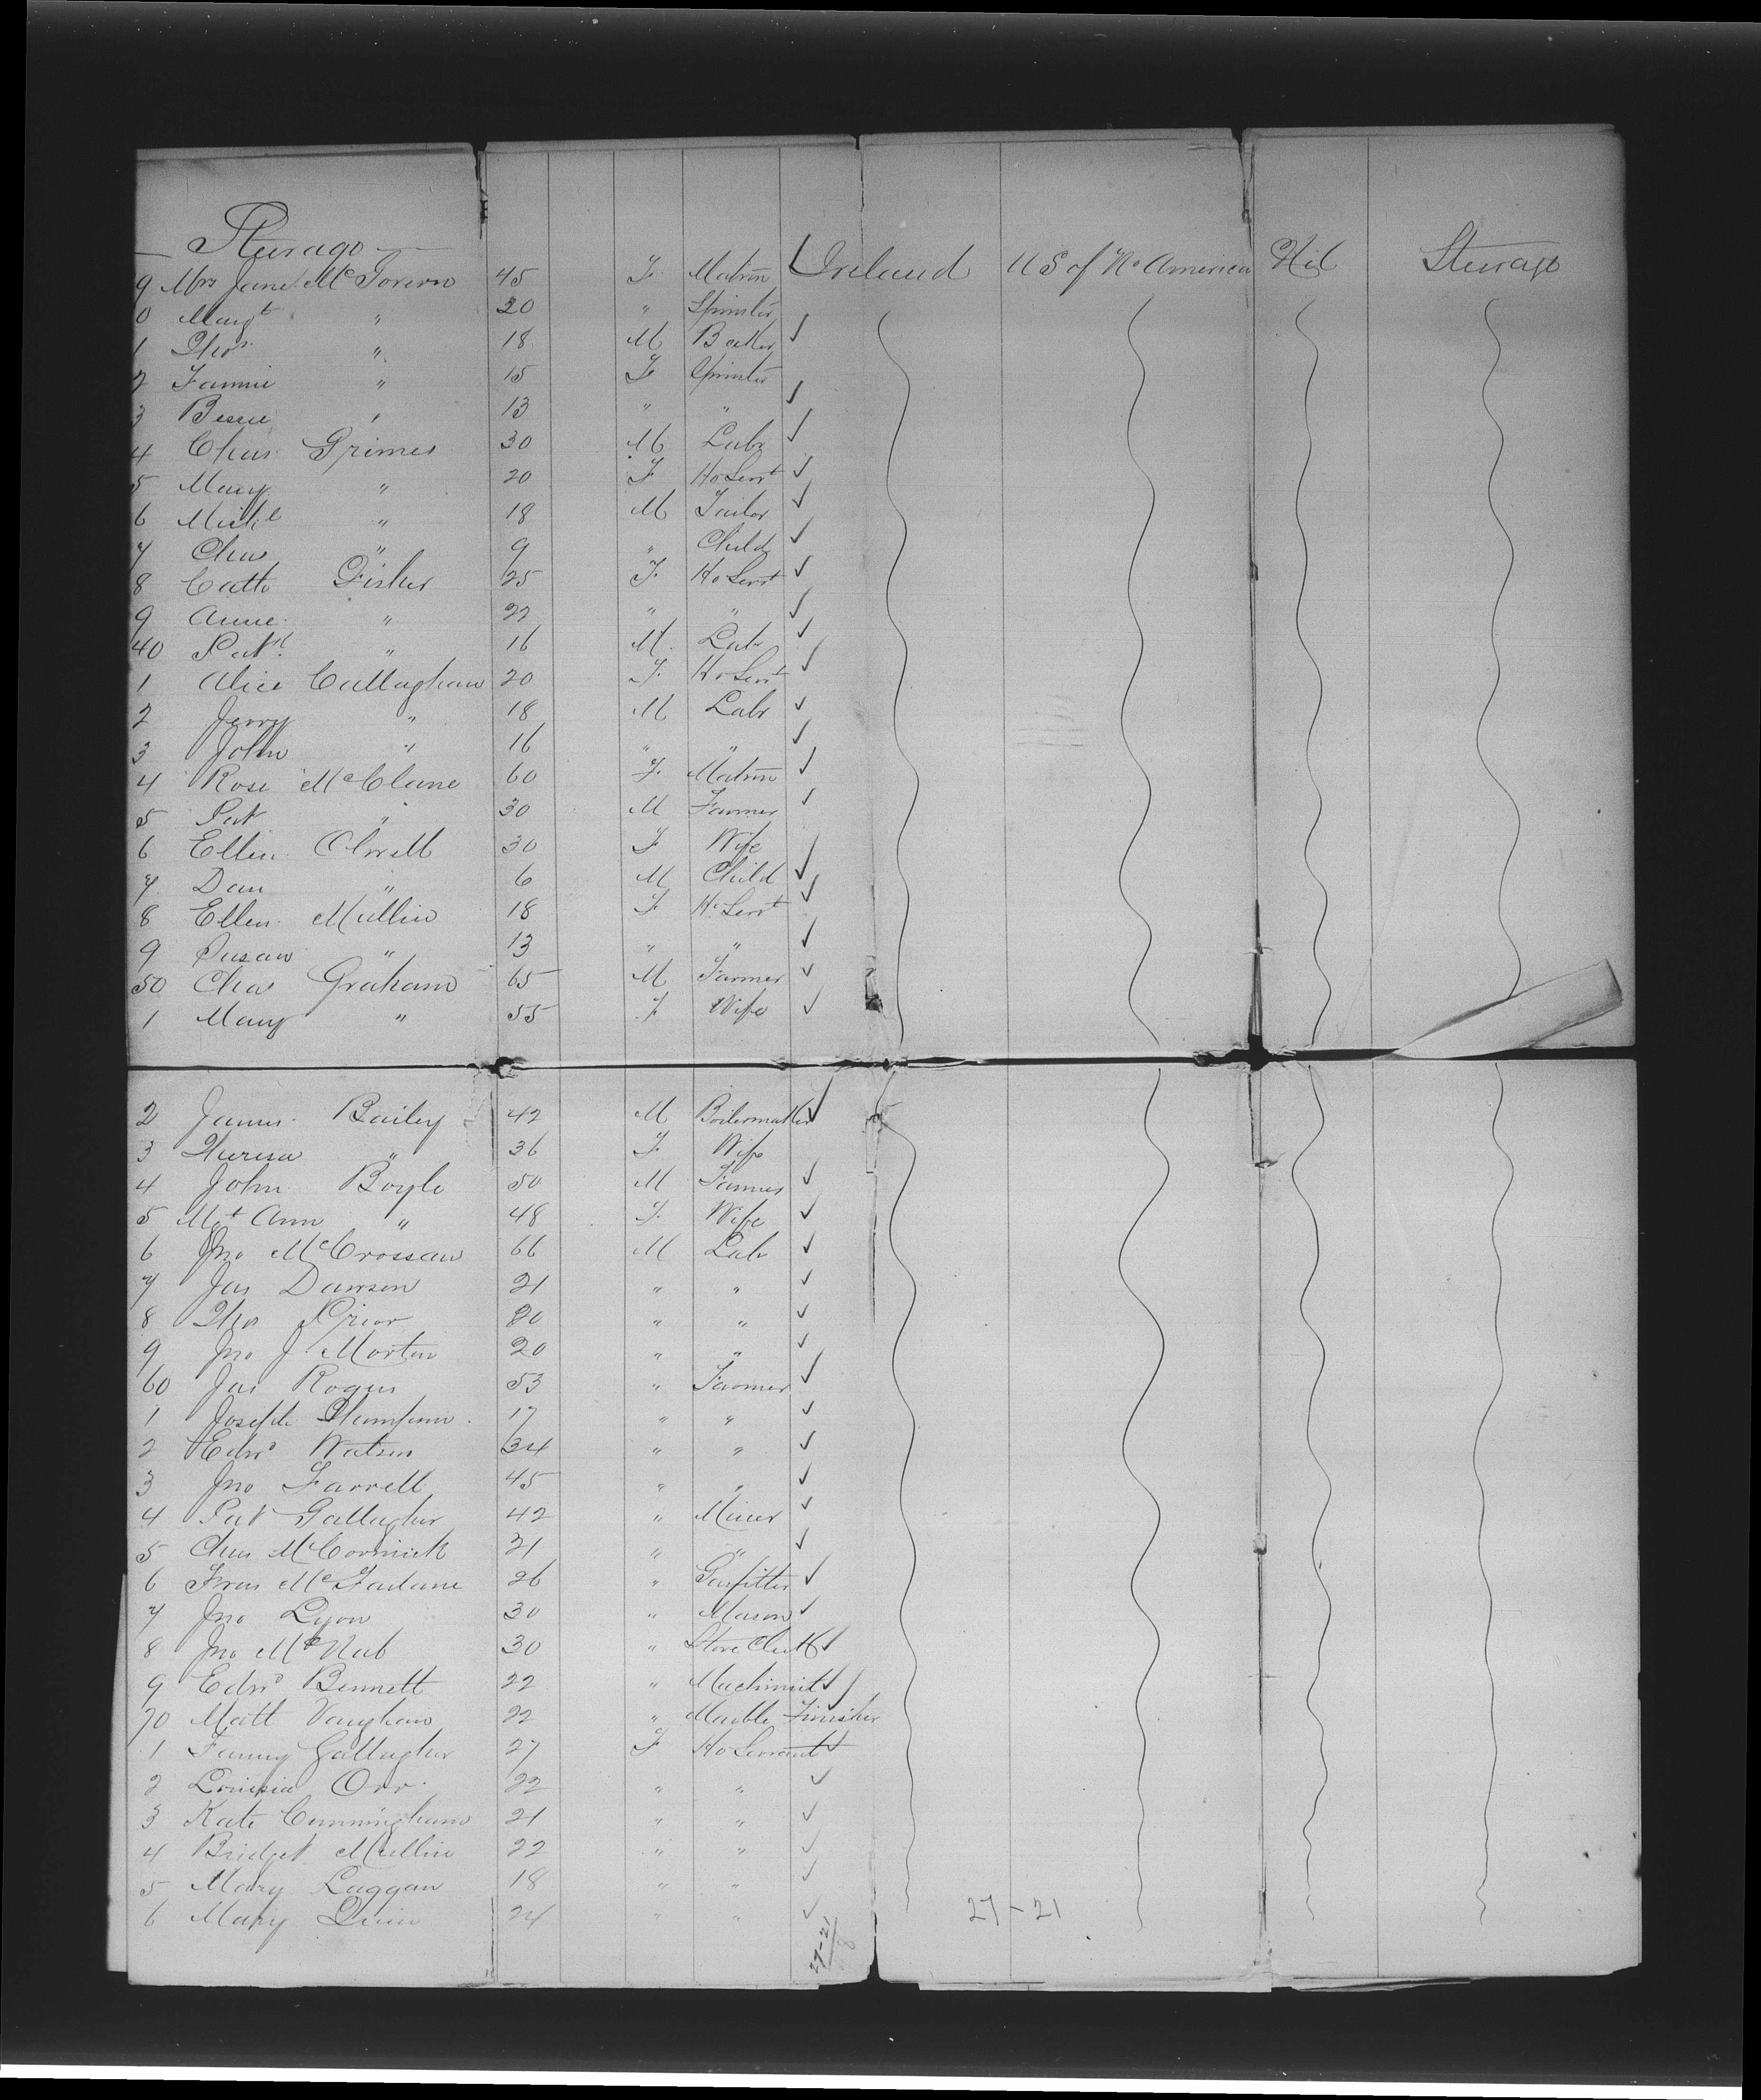 Steerage
9 Mrs Jane McGovern 45 F Matron Ireland US of No America Nil Steerage
0 Margt " 20 " Spinster
1 Thos " 18 M Baker ✓
2 Fannie " 15 F Spinster
3 Bessie " 13 " " ✓
4 Chas Grimes 30 M Labr ✓
5 Mary " 20 F Ho Servt ✓
6 Michl " 18 M Tailor ✓
7 Chas " 9 " Child ✓
8 Cath Fisher 25 F Ho Servt ✓
9 Anne " 22 " " ✓
40 Patk " 16 M Labr ✓
1 Alice Callaghan 20 F Ho Servt ✓
2 Jerry " 18 M Labr ✓
3 John " 16 " " ✓
4 Rose McClane 60 F Matron ✓
5 Pat " 30 M Farmer ✓
6 Ellen 30 F Wife
7 Dan " 6 M Child ✓
8 Ellen Mullin 18 F Ho Servt ✓
9 Susan " 13 " " ✓
50 Chas Graham 65 M Farmer ✓
1 Mary " 55 F Wife ✓
2 James Bailey 42 M Boilermaker ✓
3 Theresa " 36 F Wife
4 John Boyle 50 M Farmer ✓
5 Mgt Ann " 48 F Wife ✓
6 Jno McCrossan 66 M Labr ✓
7 Jas Dawson 21 " " ✓
8 Thos Prior 20 " " ✓
9 Jno J Morton 20 " " ✓
60 Jas Rogers 53 " Farmer ✓
1 Joseph Thompson 17 " " ✓
2 Edwd Watson 34 " " ✓
3 Jno Farrell 45 " " ✓
4 Pat Gallagher 42 " Miner ✓
5 Chas McCormick 21 " " ✓
6 Fras McFarlane 26 " Gasfitter ✓
7 Jno Lyon 30 " Mason ✓
8 Jno McNab 30 " Store Clerk ✓
9 Edwd Bennett 22 " Machinist ✓
70 Matt Vaughan 22 " Marble Finisher
1 Fanny Gallagher 27 F Ho Servant ✓
2 Louisia Orr 22 " " ✓
3 Kate Cunningham 21 " " ✓
4 Bridget Mullin 22 " " ✓
5 Mary Laggan 18 " " ✓
6 Mary Quin 24 " " ✓
27-21
27-21
8